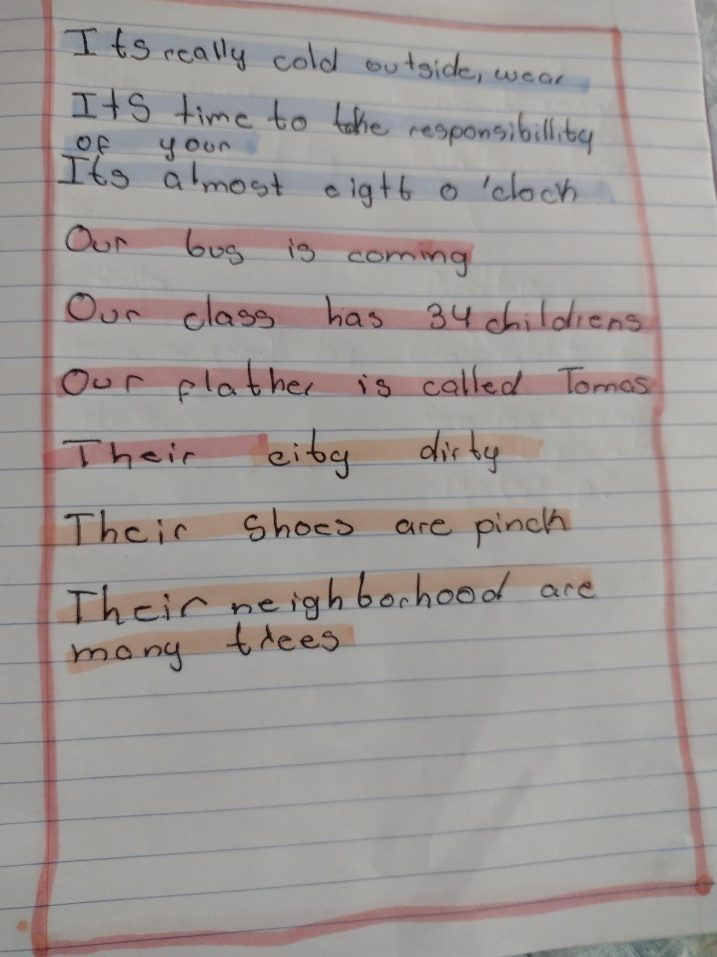 Its really cold outside, wear
Its time to take responsibillity
of your
Its almost eight o 'cloch
Our bus is coming
Our class has 34 childrens
Our flather is called Tomas
Their city dirty
Their shoes are pinch
Their neighborhood are
many trees